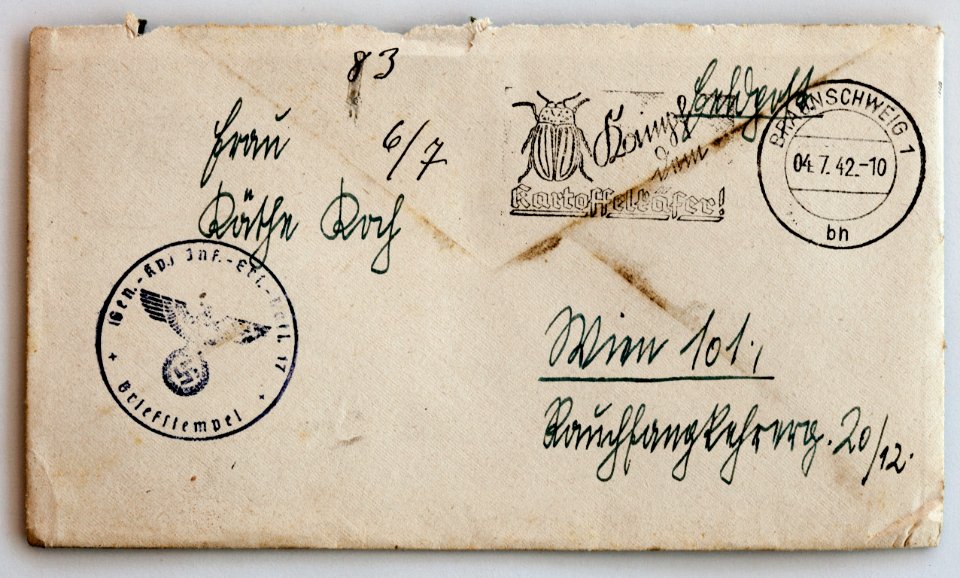 83
Feldpost
Frau
6/7
Käthe Koch
Kampf
dem
Kartoffelkäfer!
BRAUNSCHWEIG 1
04.7.42.-10
bh
(Gen.-Kp.) Inf.-Ers.-Batl. 17
+ Briefstempel +
Wien 101.,
Rauchfangkehrerg. 20/12.